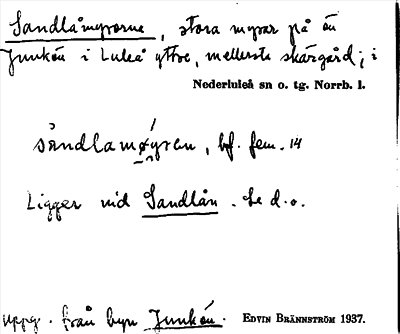 Sandlåmyrorna, stora myrar på ön
Junkön i Luleå yttre, mellersta skärgård; i
Nederluleå sn o. tg. Norrb. l.
sàndlamø̀yren, bf. fem. 14
Ligger vid Sandlån. Se d.o.
uppg. från byn Junkön. EDVIN BRÄNNSTRÖM 1937.